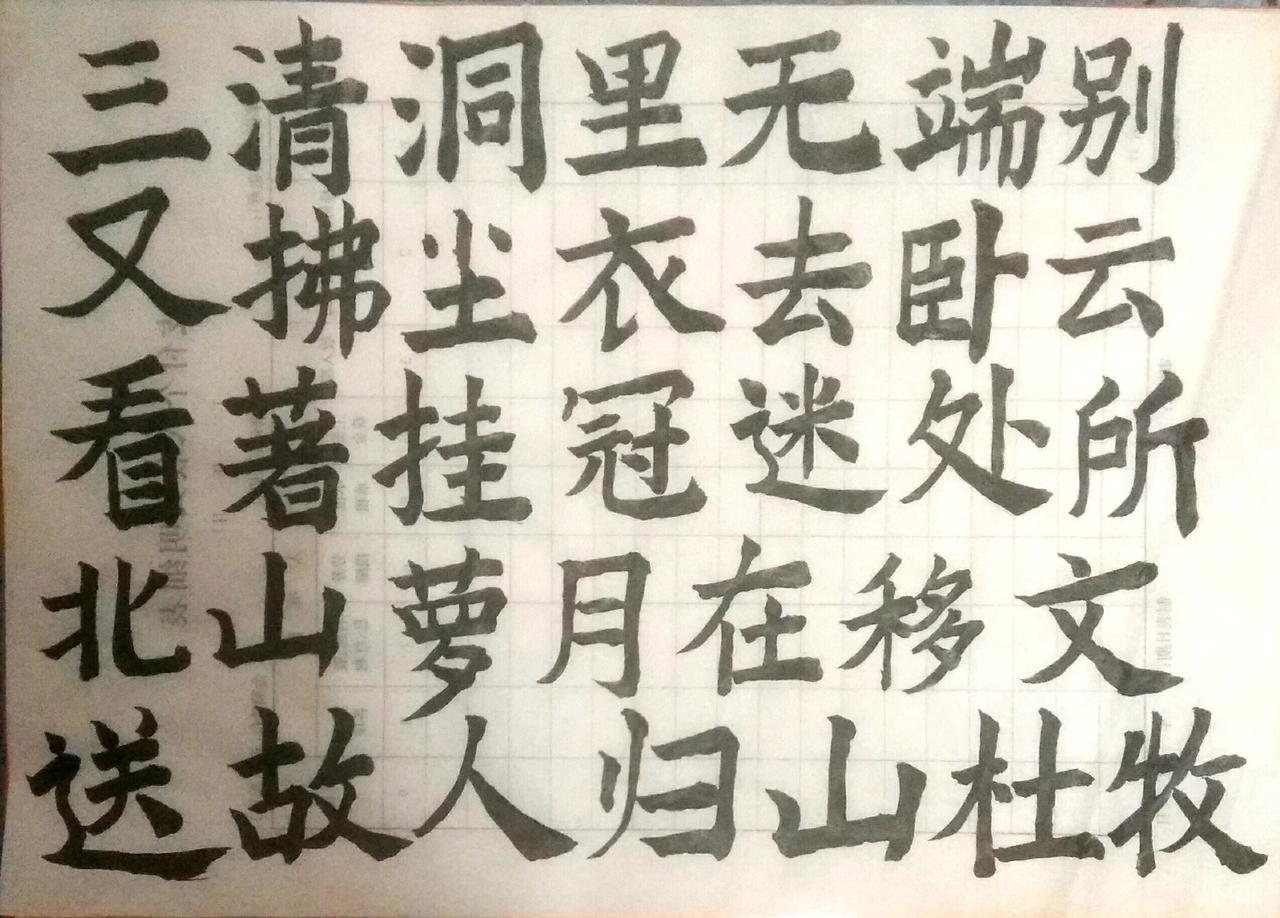 三清洞里无端别
又拂尘衣去卧云
看著挂冠迷处所
北山萝月在移文
送故人归山杜牧